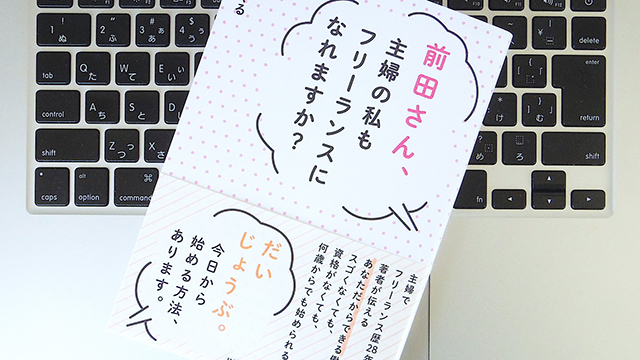 前田さん、
主婦の私も
フリーランスに
なれますか?
だい
じょうぶ。
今日から
始める方法、
あります。
主婦で
フリーランス歴28年
著者が伝える
あなただからできる
スゴくなくても、
資格がなくても、
何歳からでも始められる
る
tab
Q た
W て
E い
control
A ち
S と
shift
Z つ
X さ
caps
option
command
delete
return
shift
fn